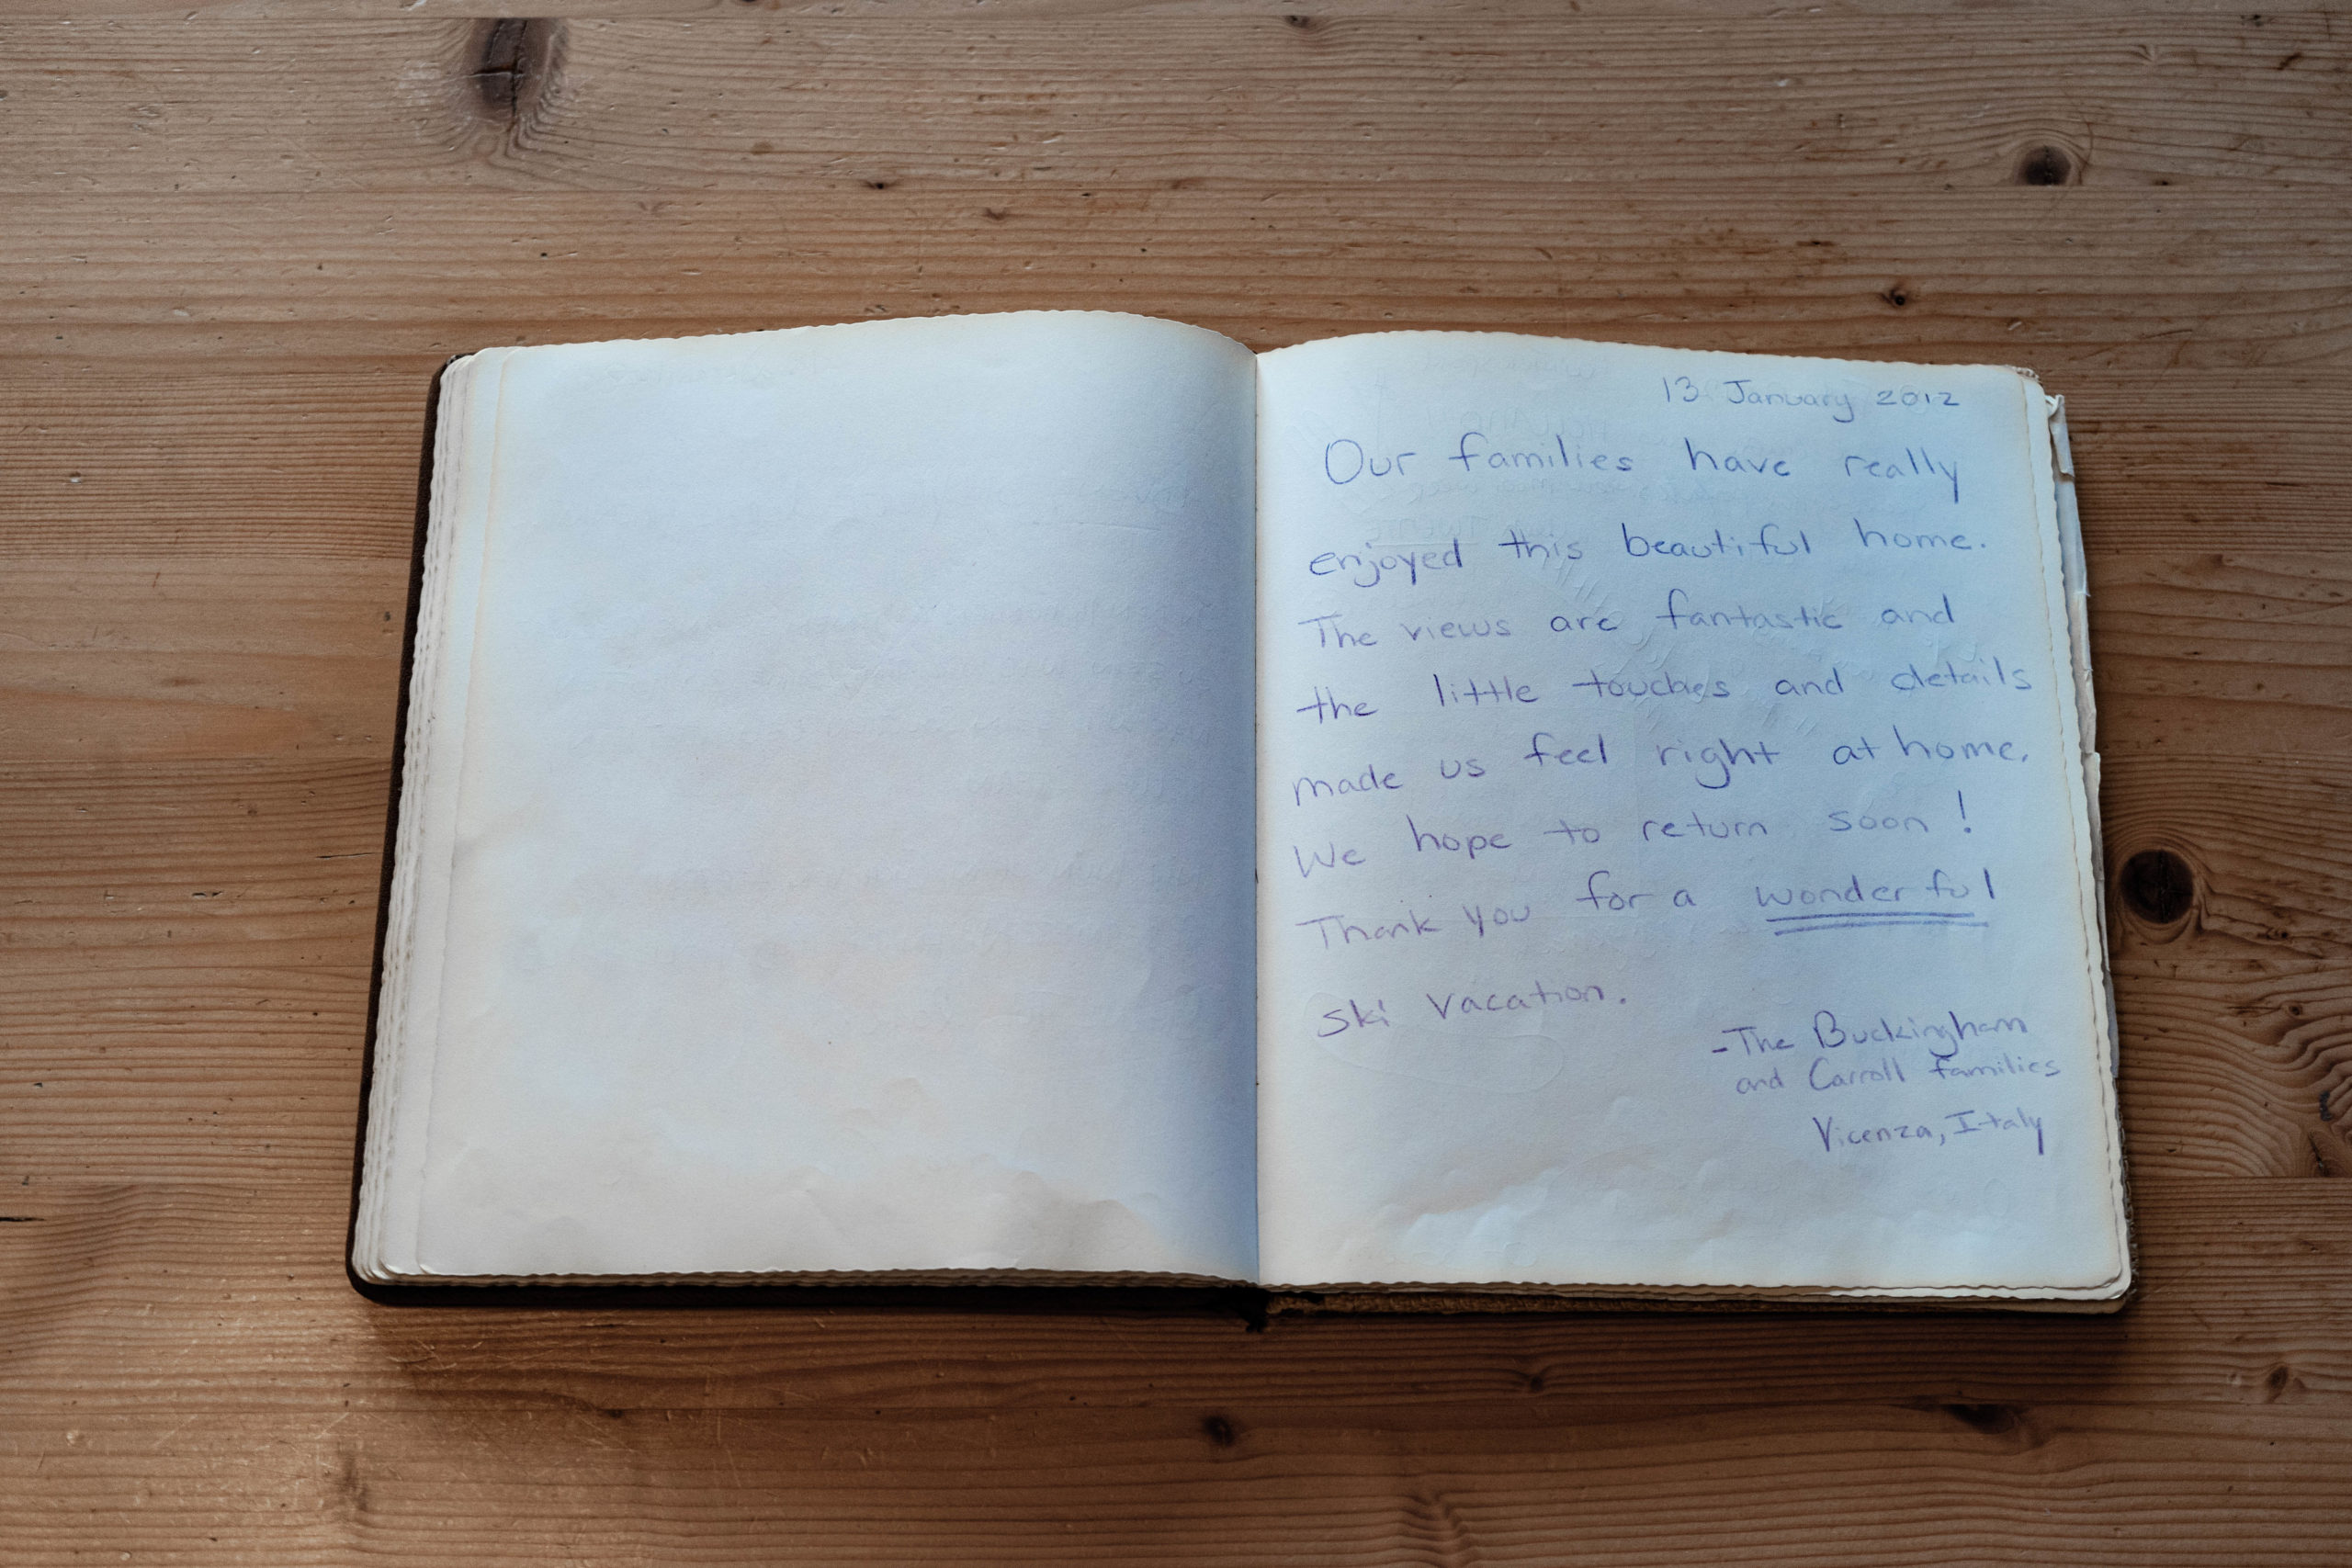 13 January 2012
Our families have really
enjoyed this beautiful home.
The views are fantastic and
the little touches and details
made us feel right at home.
We hope to return soon!
Thank you for a wonderful
ski vacation.
-The Buckingham
and Carroll families
Vicenza, Italy